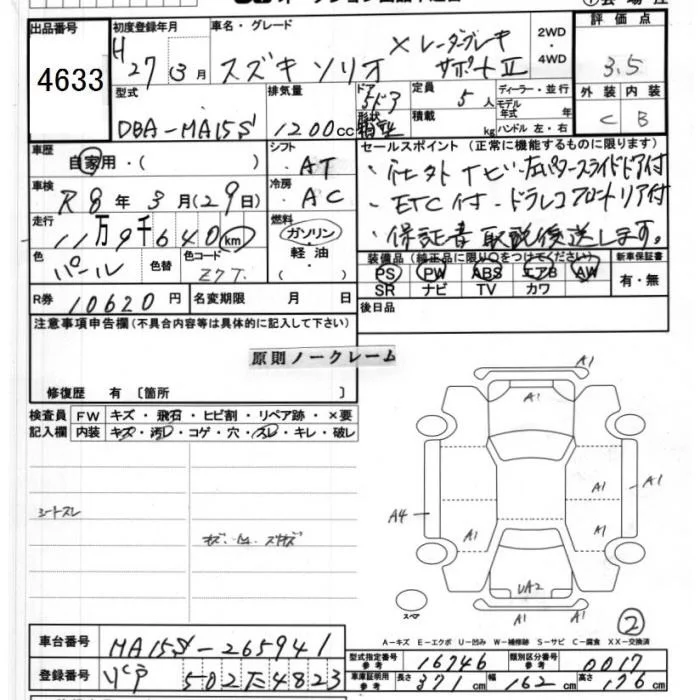 出品番号
4633
初度登録年月
H27年3月
車名・グレード
スズキ ソリオ X レーダーブレーキサポートⅡ
2WD
4WD
評価点
3.5
外装 内装
C B
型式
DBA-MA15S
排気量
1200cc
ドア
5ドア
形状
定員
5人
積載
kg
ディーラー・並行
モデル年式 年
ハンドル 左・右
車歴
自家用・( )
シフト
AT
車検
R8年3月(29日)
冷房
AC
走行
11万9千640km
燃料
ガソリン・
軽油・
( )
色
パール
色替
色コード
Z7T
R券
10620円
名変期限 月 日
セールスポイント (正常に機能するものに限ります)
・社外ナビ・左パワースライドドア付
・ETC付・ドラレコフロントリア付
・保証書取説後送します。
装備品 (純正品に限り○をつけてください)
PS PW ABS エアB AW
SR ナビ TV カワ
新車保証書
有・無
後日品
注意事項申告欄(不具合内容等は具体的に記入して下さい)
原則ノークレーム
修復歴 有 〔箇所 〕
検査員記入欄
FW キズ・飛石・ヒビ割・リペア跡・×要
内装 キズ・汚レ・コゲ・穴・スレ・キレ・破レ
シートスレ
A1
A1
A1
A1
A4
A1
A1
A1
UA2
スペア
②
A-キズ E-エクボ U-凹み W-補修跡 S-サビ C-腐食 XX-交換済
車台番号
MA15S-265941
登録番号
502 4823
型式指定番号
参考
16746
類別区分番号
参考
0017
車庫証明用
参考
長さ 371cm
幅 162cm
高さ 176cm